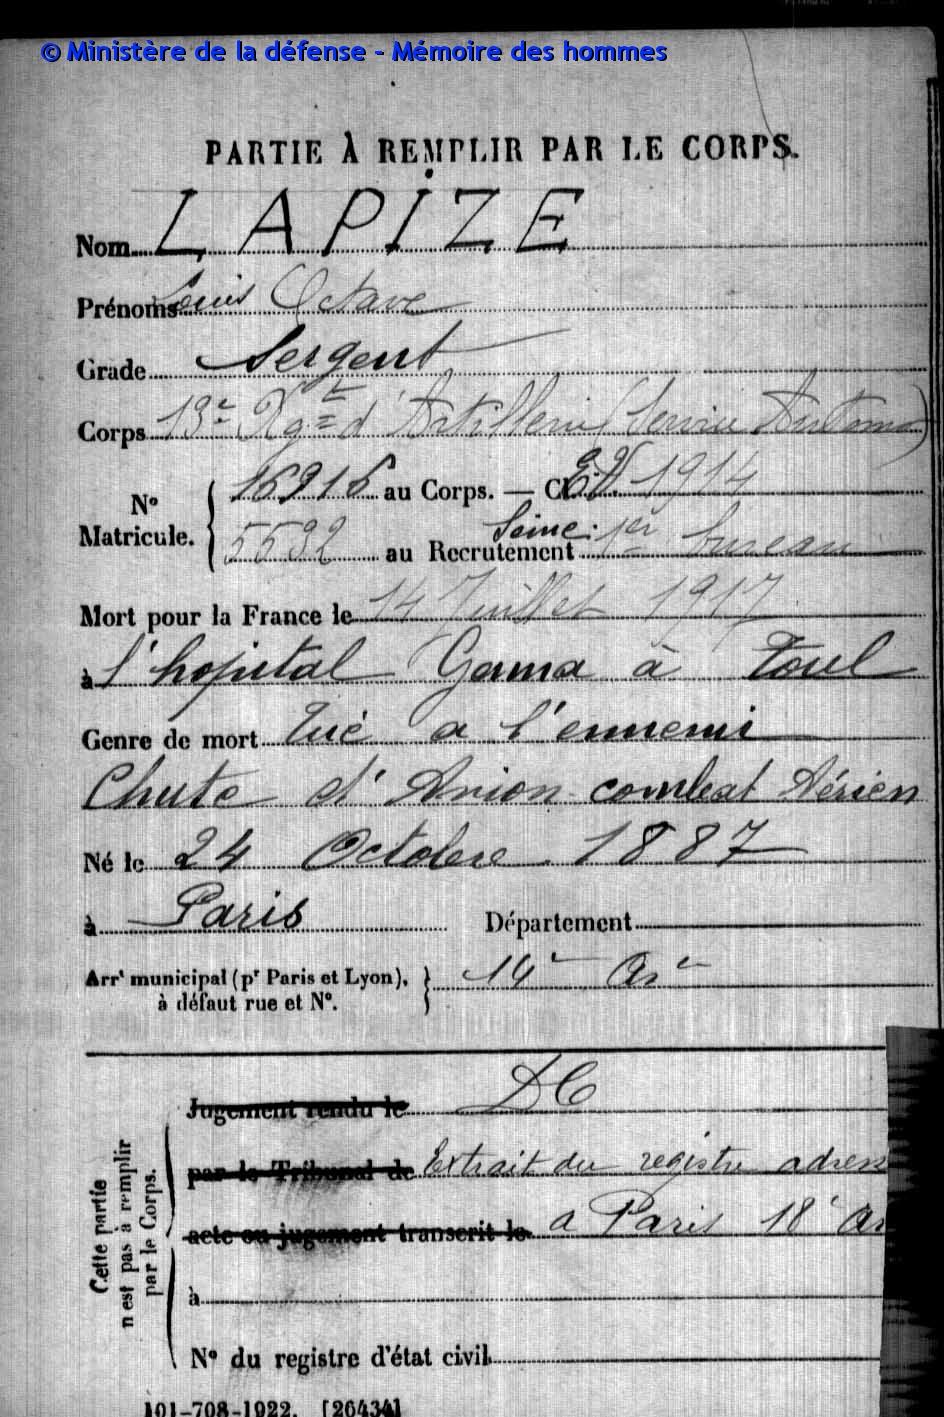 © Ministère de la défense - Mémoire des hommes
PARTIE À REMPLIR PAR LE CORPS.
Nom LAPIZE
Prénoms Louis Octave
Grade Sergent
Corps 13e Rgt d'Artillerie (Service Autom)
N° Matricule. { 16916 au Corps. — Cl. EV 1914
5592 au Recrutement Seine. 1er bureau
Mort pour la France le 14 Juillet 1917
à l'hopital Gama à Toul
Genre de mort Tué a l'ennemi
Chute d'Avion combat Aérien
Né le 24 Octobre 1887
à Paris Département
Arrt municipal (pr Paris et Lyon), } 14e Arr
à défaut rue et N°.
Cette partie n'est pas à remplir par le Corps.
Jugement rendu le DC
par le Tribunal de Extrait du registre adress
acte ou jugement transcrit le a Paris 18e Ar
à
N° du registre d'état civil
101-708-1922. [26434]